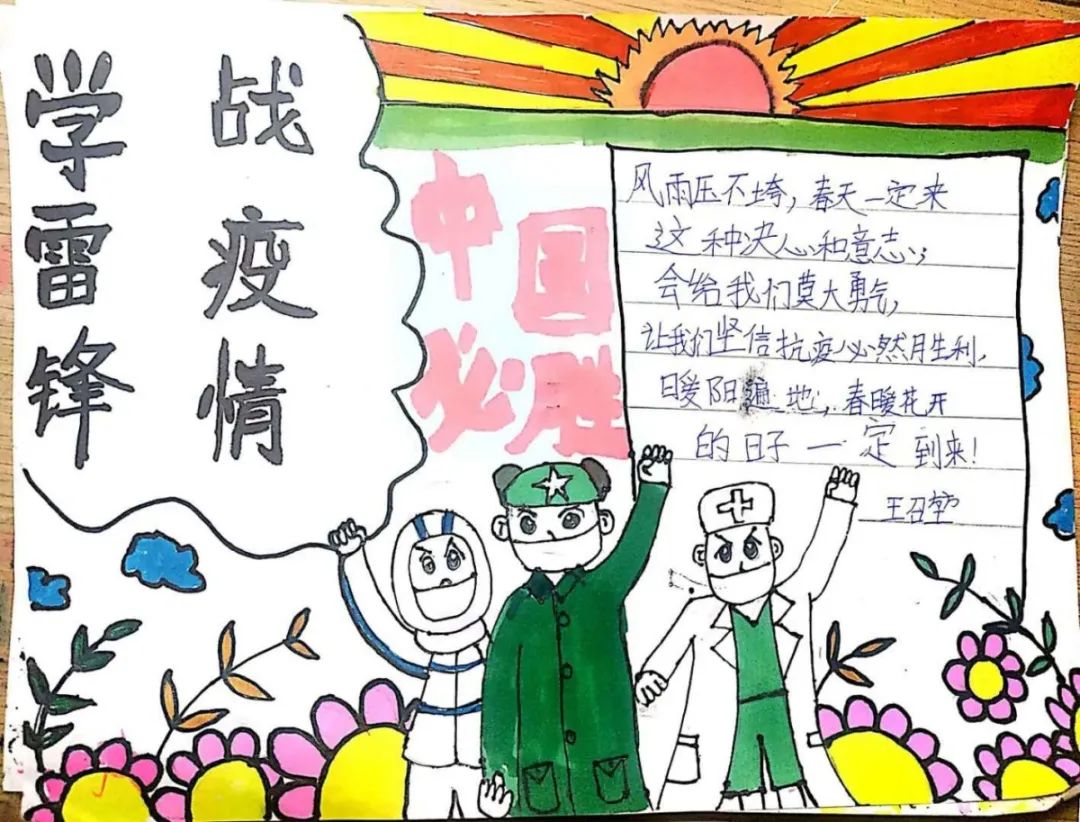 学雷锋
战疫情
中国
必胜
风雨压不垮，春天一定来
这种决心和意志；
会给我们莫大勇气，
让我们坚信抗疫必然胜利，
暖阳遍地，春暖花开
的日子一定到来！